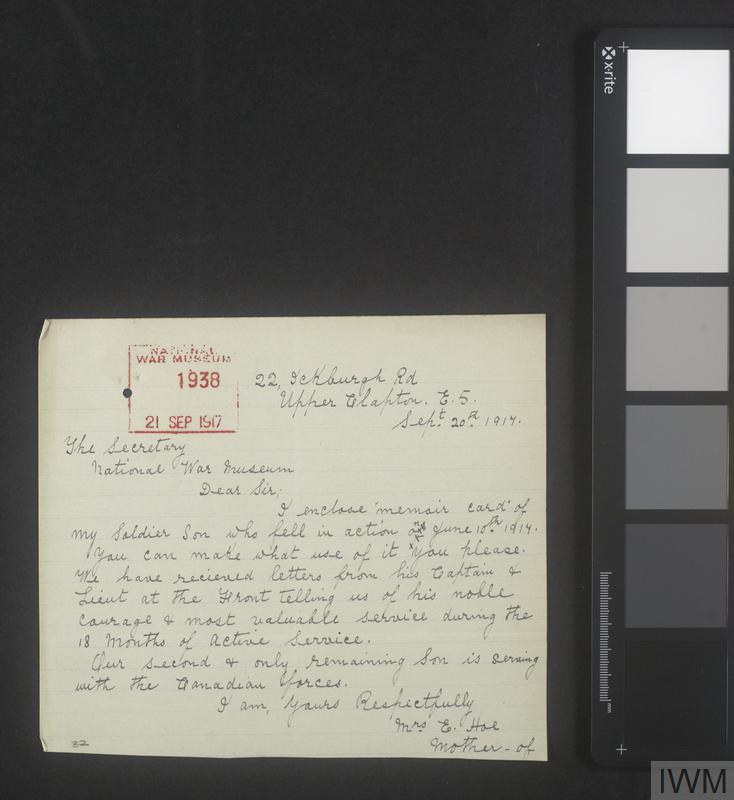 NATIONAL
WAR MUSEUM
1938
21 SEP 1917
22, Ickburgh Rd
Upper Clapton. E. 5.
Sept. 20th 1917.
The Secretary
National War Museum
Dear Sir,
I enclose "memoir card" of
my Soldier Son who fell in action June 10th 1917.
You can make what use of it you please.
We have recieved letters from his Captain &
Lieut at the Front telling us of his noble
courage & most valuable service during the
18 Months of Active Service.
Our second & only remaining Son is serving
with the Canadian Forces.
I am, Yours Respectfully
Mrs E. Hoe
Mother - of
32
x-rite
mm
IWM